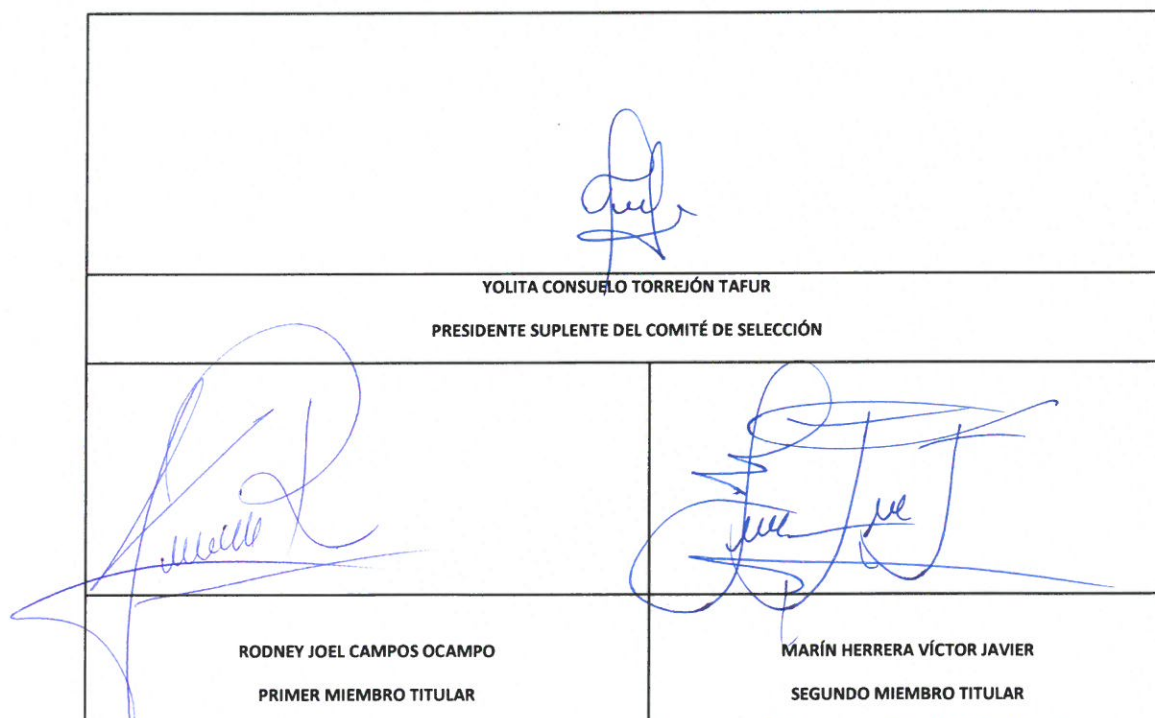 YOLITA CONSUELO TORREJÓN TAFUR
PRESIDENTE SUPLENTE DEL COMITÉ DE SELECCIÓN
RODNEY JOEL CAMPOS OCAMPO
PRIMER MIEMBRO TITULAR
MARÍN HERRERA VÍCTOR JAVIER
SEGUNDO MIEMBRO TITULAR